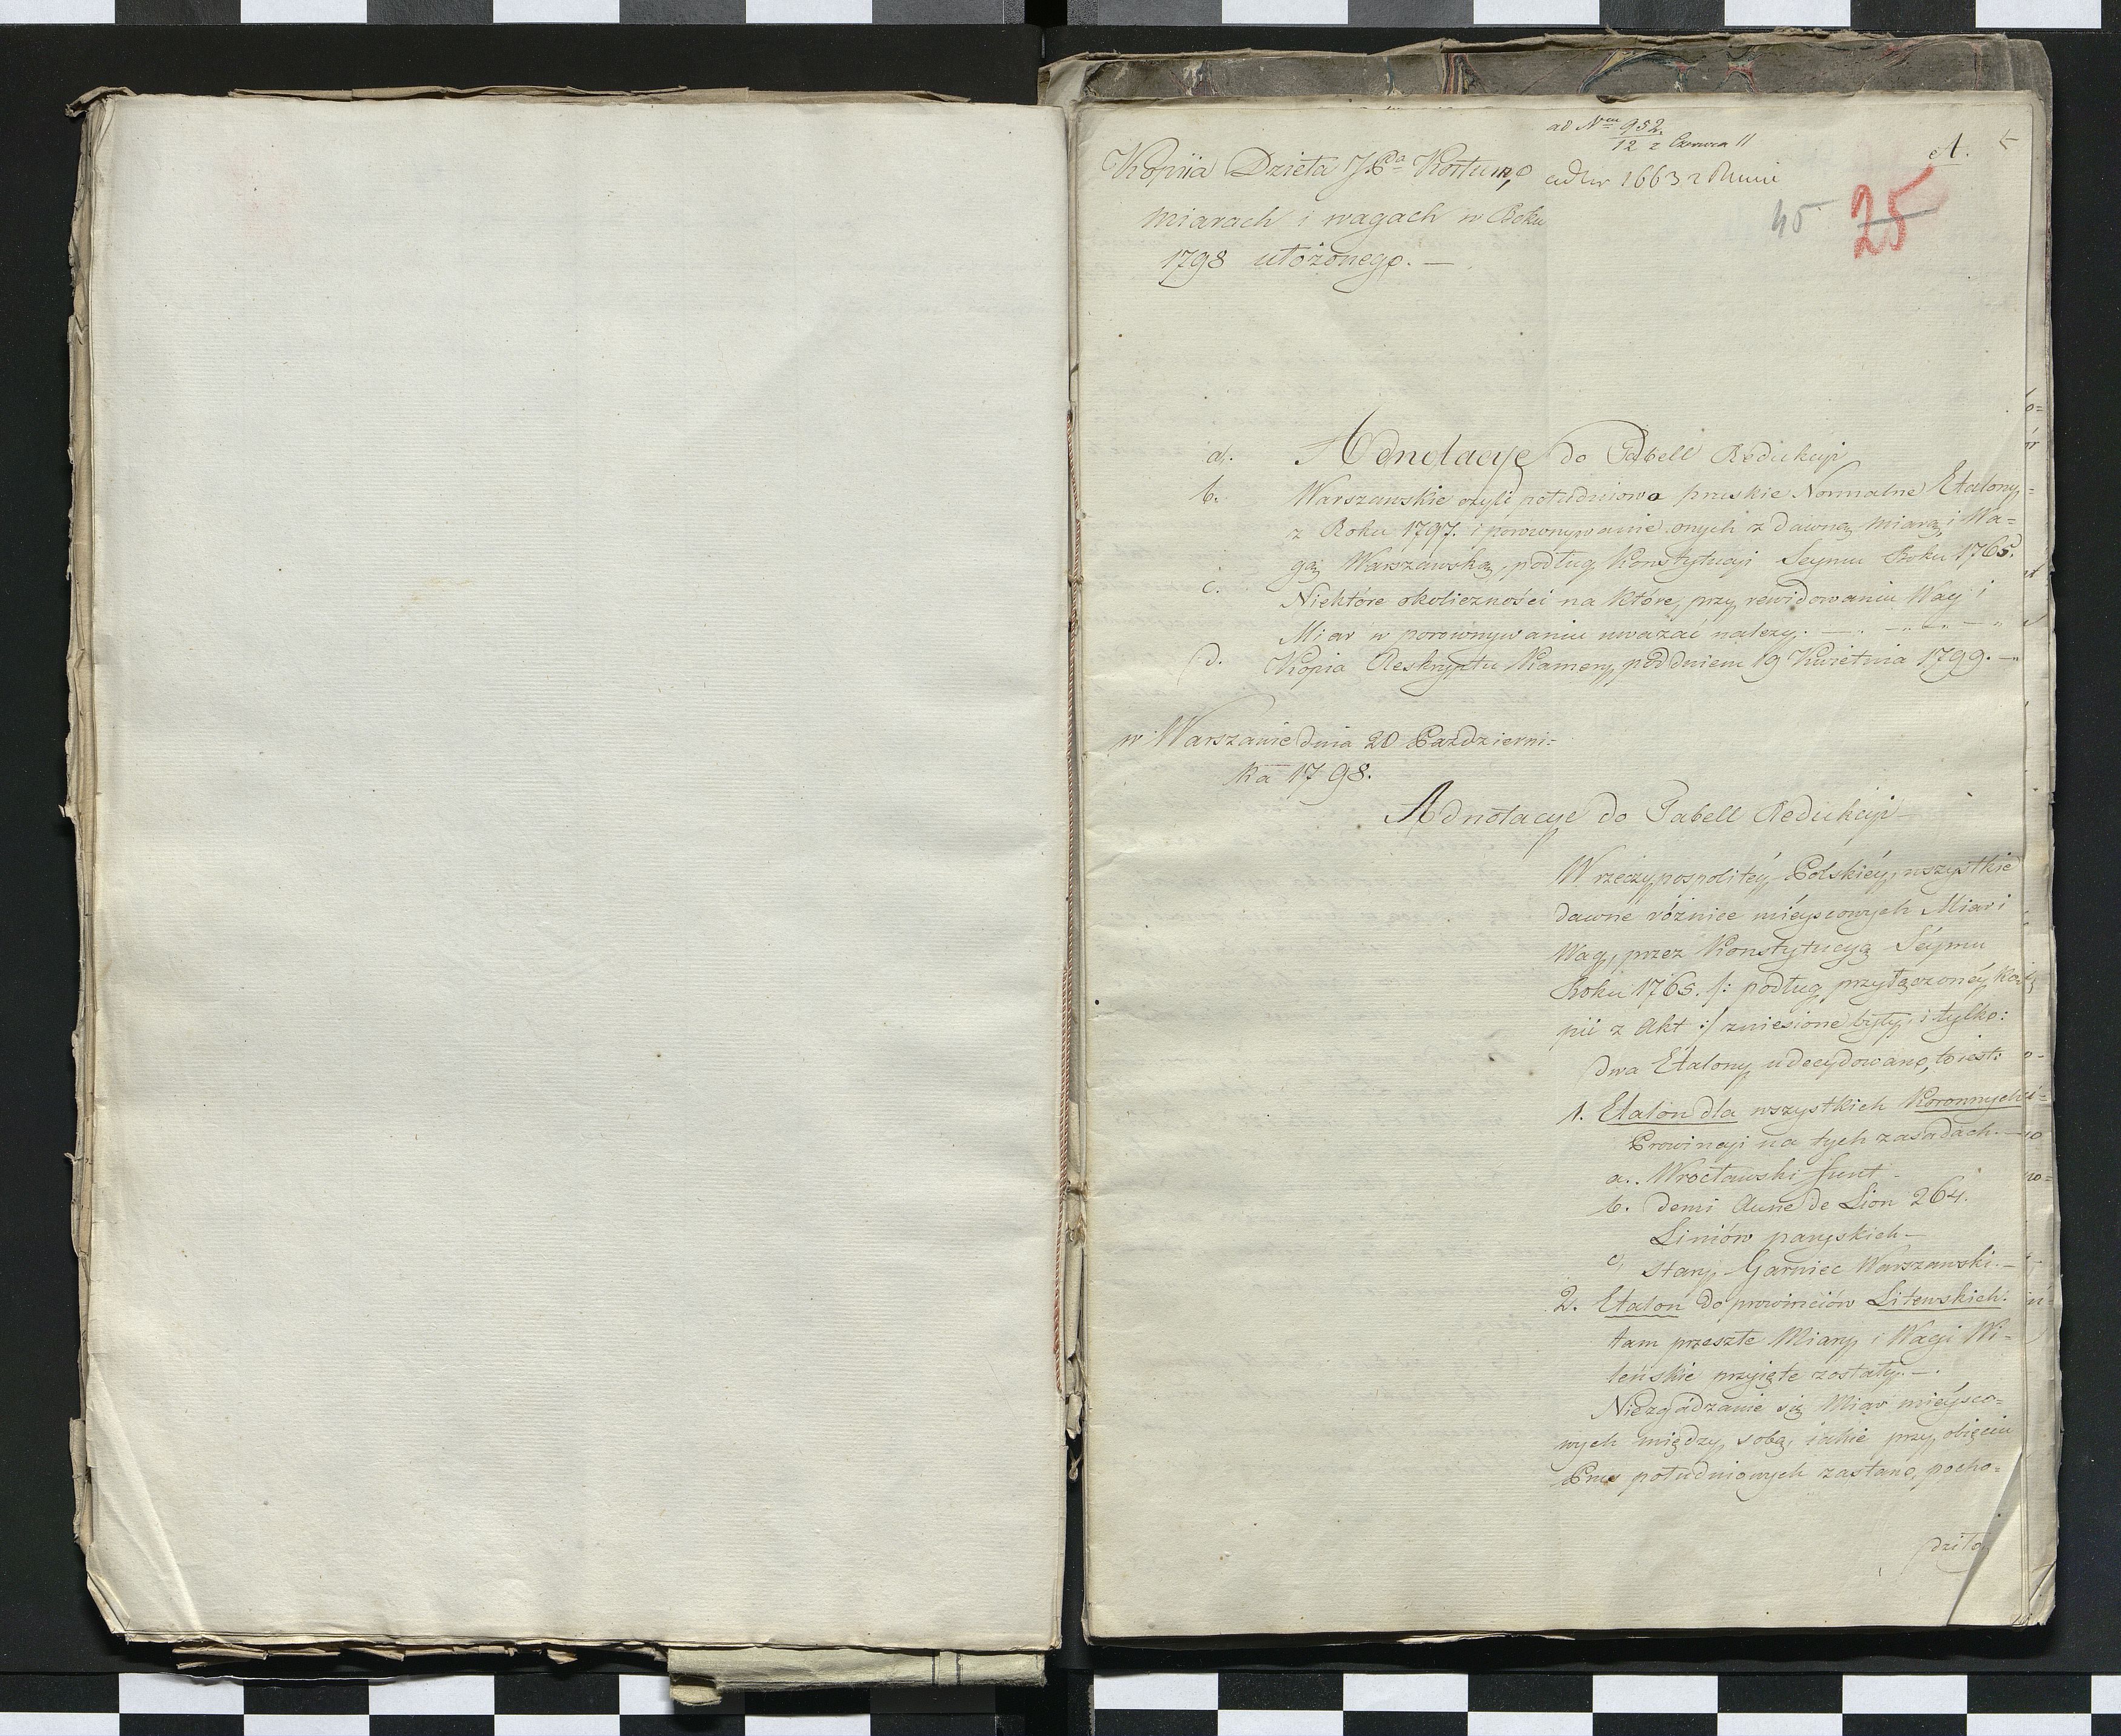 ad N<sup>m</sup> 952.
12 z Czerwca 11
A.
Kopiia Dzieła JP<sup>da</sup> Kortum, o
miarach i wagach w Roku
1798 ułożonego. —
ad Nr 1663
45 25
a. Adnotacye do Tabell Redukcyi
b. Warszawskie czyli południowo pruskie Normalne Etalony
z Roku 1797. i porownywanie onych z dawną miarą i Wa=
gą Warszawską, podług Konstytucyi Seymu Roku 1765.
c. Niektóre okoliczności na które przy rewidowaniu Wag i
Miar w porownywaniu uważać należy. —
d. Kopia Reskryptu Kamery pod dniem 19 Kwietnia 1799. —
w Warszawie dnia 20 Październi=
ka 1798.
Adnotacye do Tabell Redukcyi
W rzeczypospolitéy Polskiéy, wszystkie
dawne różnice miéyscowych Miar i
Wag, przez Konstytucyą Séymu
Roku 1765. /: podług przyłączonéy Ko
pii z Akt :/ zniesione były, i tylko:
dwa Etalony udecydowano, to iest:
1. Etalon dla wszystkich Koronnych
Prowincyi na tych zasadach. —
a. Wrocławski funt —
b. demi Aune de Lion 264.
Liniów paryskich —
c, Stary Garniec Warszawski. —
2. Etalon do prowinciów Litewskich.
tam przeszłe Miary i Wagi Wi=
leńskie przyięte zostały. —
Niezgadzanie się Miar miéysco=
wych między sobą, iakie przy obięciu
Prus południowych zastano, pocho=
dziło